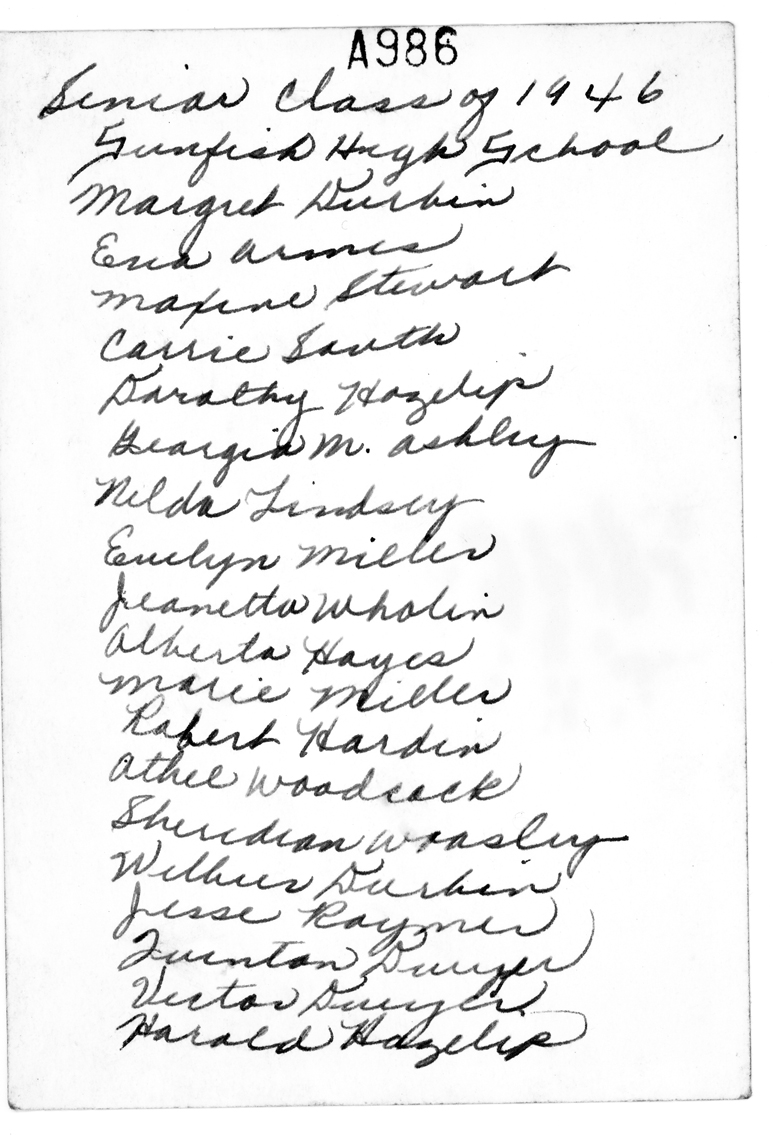 A986
Senior Class of 1946
Sunfish High School
Margret Durbin
Eva Armes
Maxine Stewart
Carrie South
Dorothy Hazelip
Georgia M. Ashley
Nelda Lindsey
Evelyn Miller
Jeanetta Wholin
Alberta Hayes
Marie Miller
Robert Hardin
Athel Woodcock
Sheridian Woosley
Wilbur Durbin
Jesse Raymer
Dwyer
Victor Dwyer
Harold Hazelip